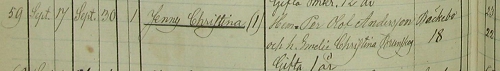 Gifta
59 Sept. 17 Sept. 30 1 Jenny Christina (1) Hem. Per Olof Andersson Backebo
och h. Emelie Christina 18 22
Gifta 1 år